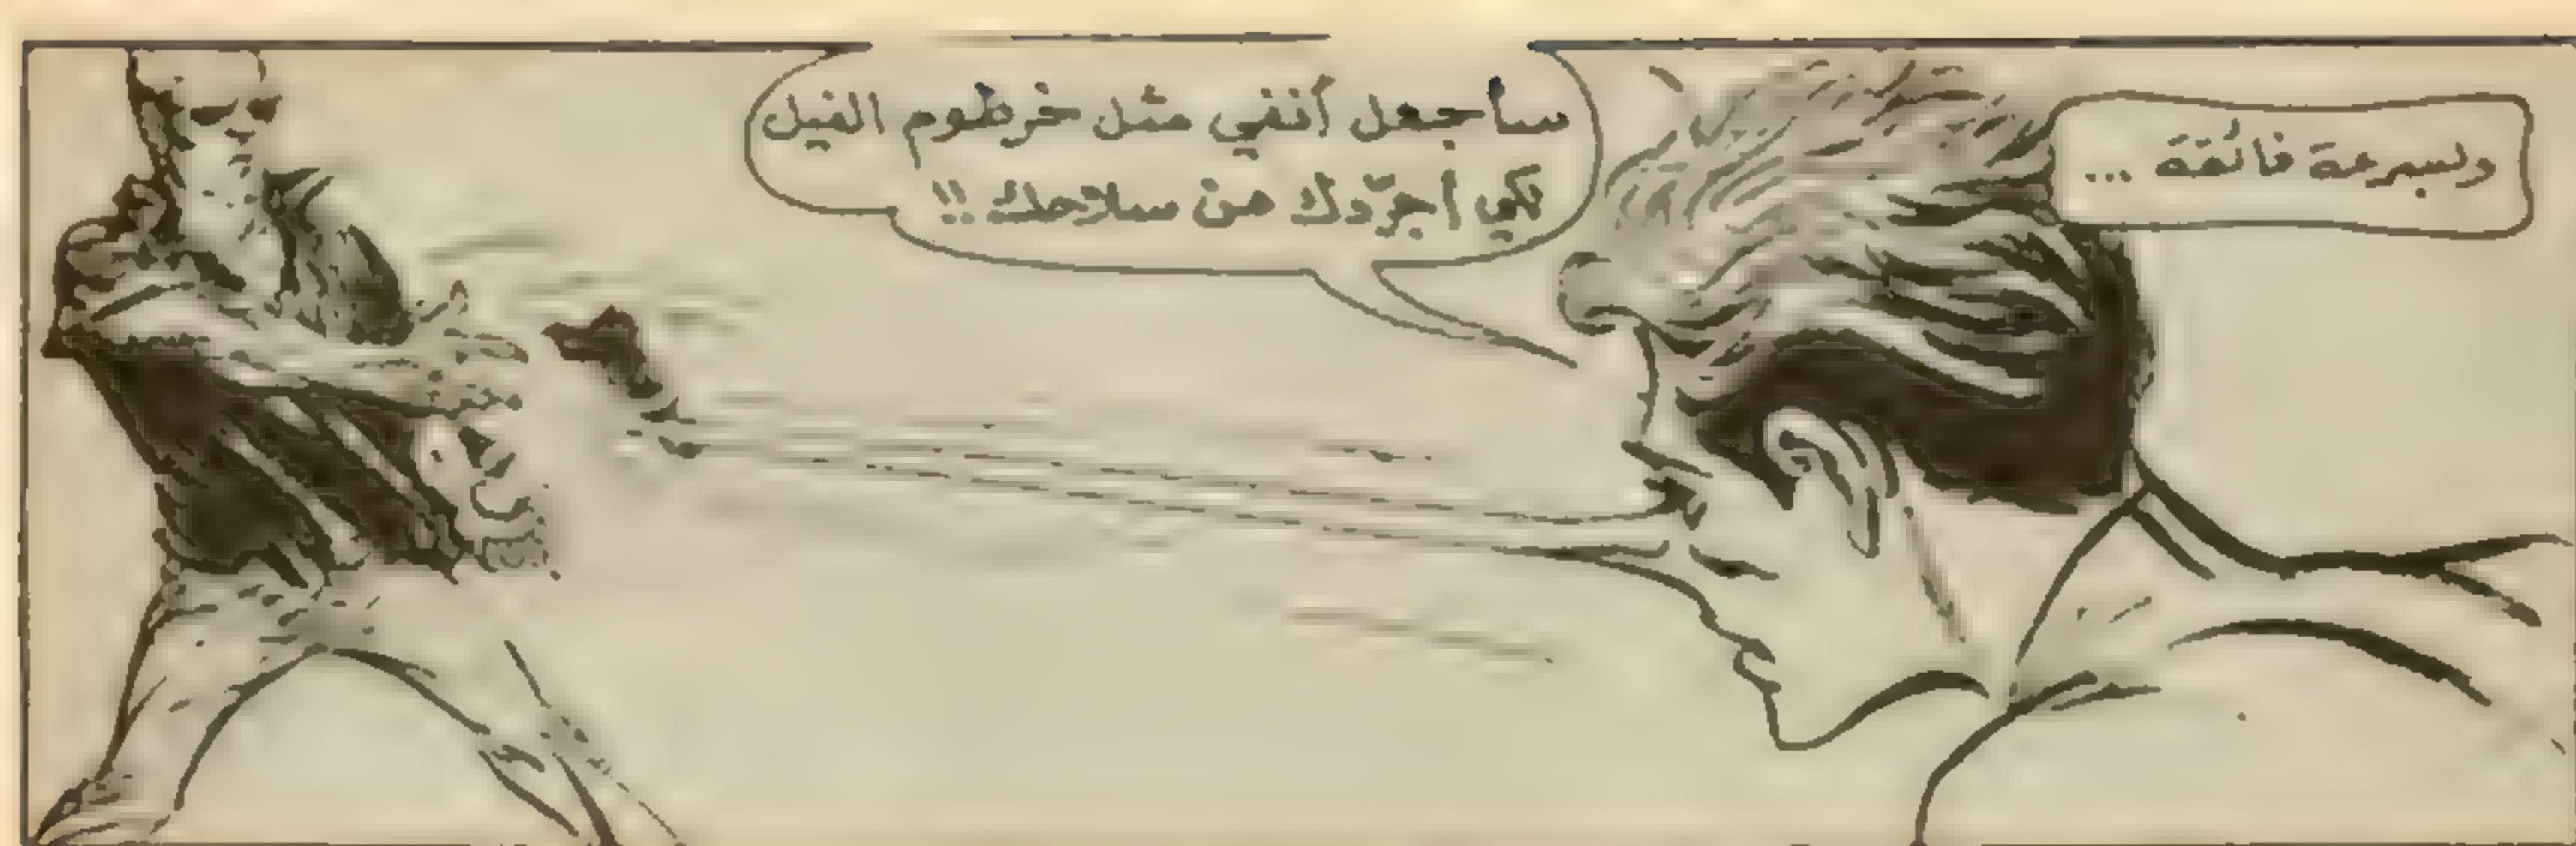 وبسرعة فائقة ...
سأجعل أنفي مثل خرطوم الفيل
لكي أجرّدك من سلاحك !!